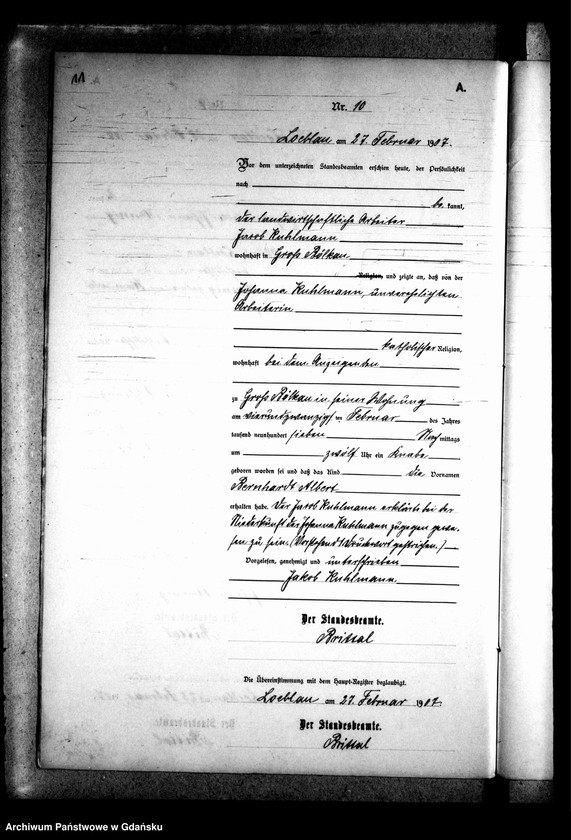 11
A.
Nr. 10
Loeblau am 27. Februar 1907.
Vor dem unterzeichneten Standesbeamten erschien heute, der Persönlichkeit
nach
be kannt,
der landwirtschaftliche Arbeiter
Jacob Kuhlmann
wohnhaft in Groß Bölkau
Religion, und zeigte an, daß von der
Johanna Kuhlmann, unverehelichten
Arbeiterin
katholischer Religion,
wohnhaft bei dem Anzeigenden
zu Groß Bölkau in seiner Wohnung
am vierundzwanzigsten Februar des Jahres
tausend neunhundert sieben Nachmittags
um zwölf Uhr ein Knabe
geboren worden sei und daß das Kind die Vornamen
Bernhardt Albert
erhalten habe. Der Jacob Kuhlmann erklärte bei der
Niederkunft der Johanna Kuhlmann zugegen gewe-
sen zu sein. (Vorstehend 1 Druckwort gestrichen.)
Vorgelesen, genehmigt und unterschrieben
Jakob Kuhlmann
Der Standesbeamte.
Brittal
Die Übereinstimmung mit dem Haupt-Register beglaubigt.
Loeblau am 27. Februar 1907
Der Standesbeamte.
Brittal
Archiwum Państwowe w Gdańsku